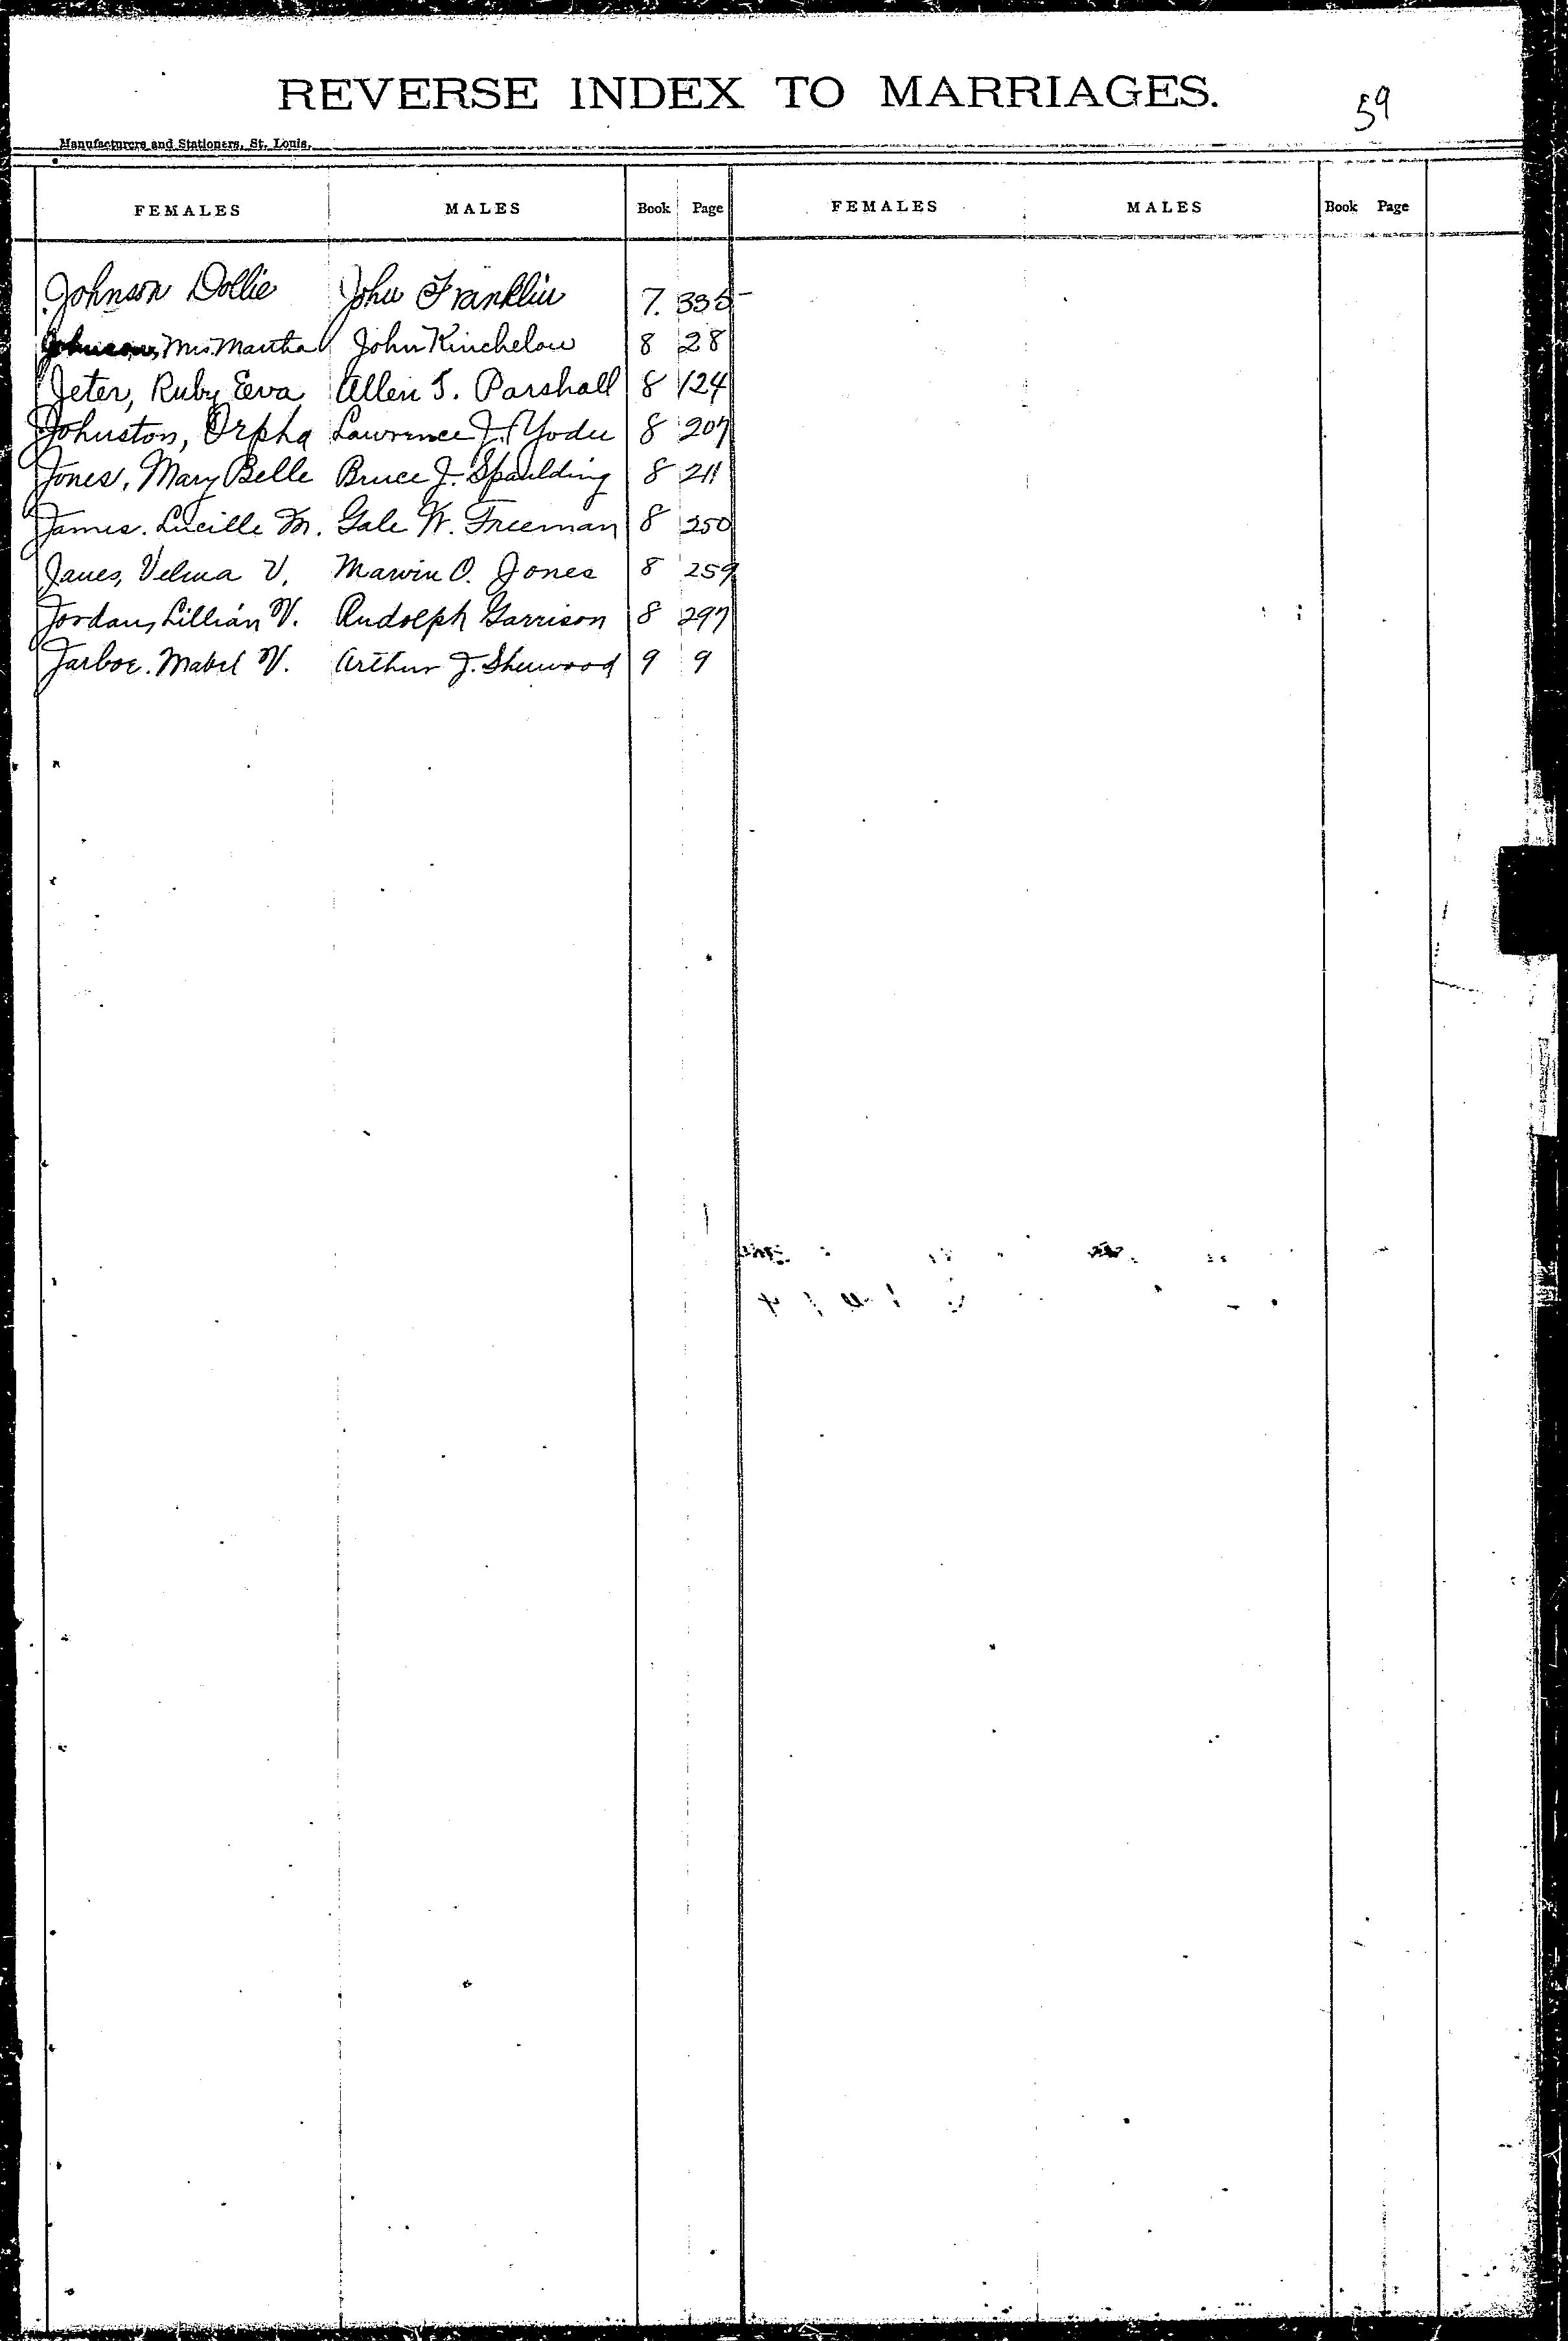 REVERSE INDEX TO MARRIAGES.
59
Manufacturers and Stationers, St. Louis.
FEMALES MALES Book Page FEMALES MALES Book Page
Johnson Dollie John Franklin 7. 335
Johnson, Mrs. Martha John Kinchelow 8 28
Jeter, Ruby Eva Allen S. Parshall 8 124
Johnston, Orpha Lawrence J. Yoder 8 207
Jones, Mary Belle Bruce J. Spaulding 8 211
James. Lucille M. Gale W. Freeman 8 250
Janes, Velma V. Marvin O. Jones 8 259
Jordan, Lillian V. Rudolph Garrison 8 297
Jarboe. Mabel V. Arthur J. Sherwood 9 9